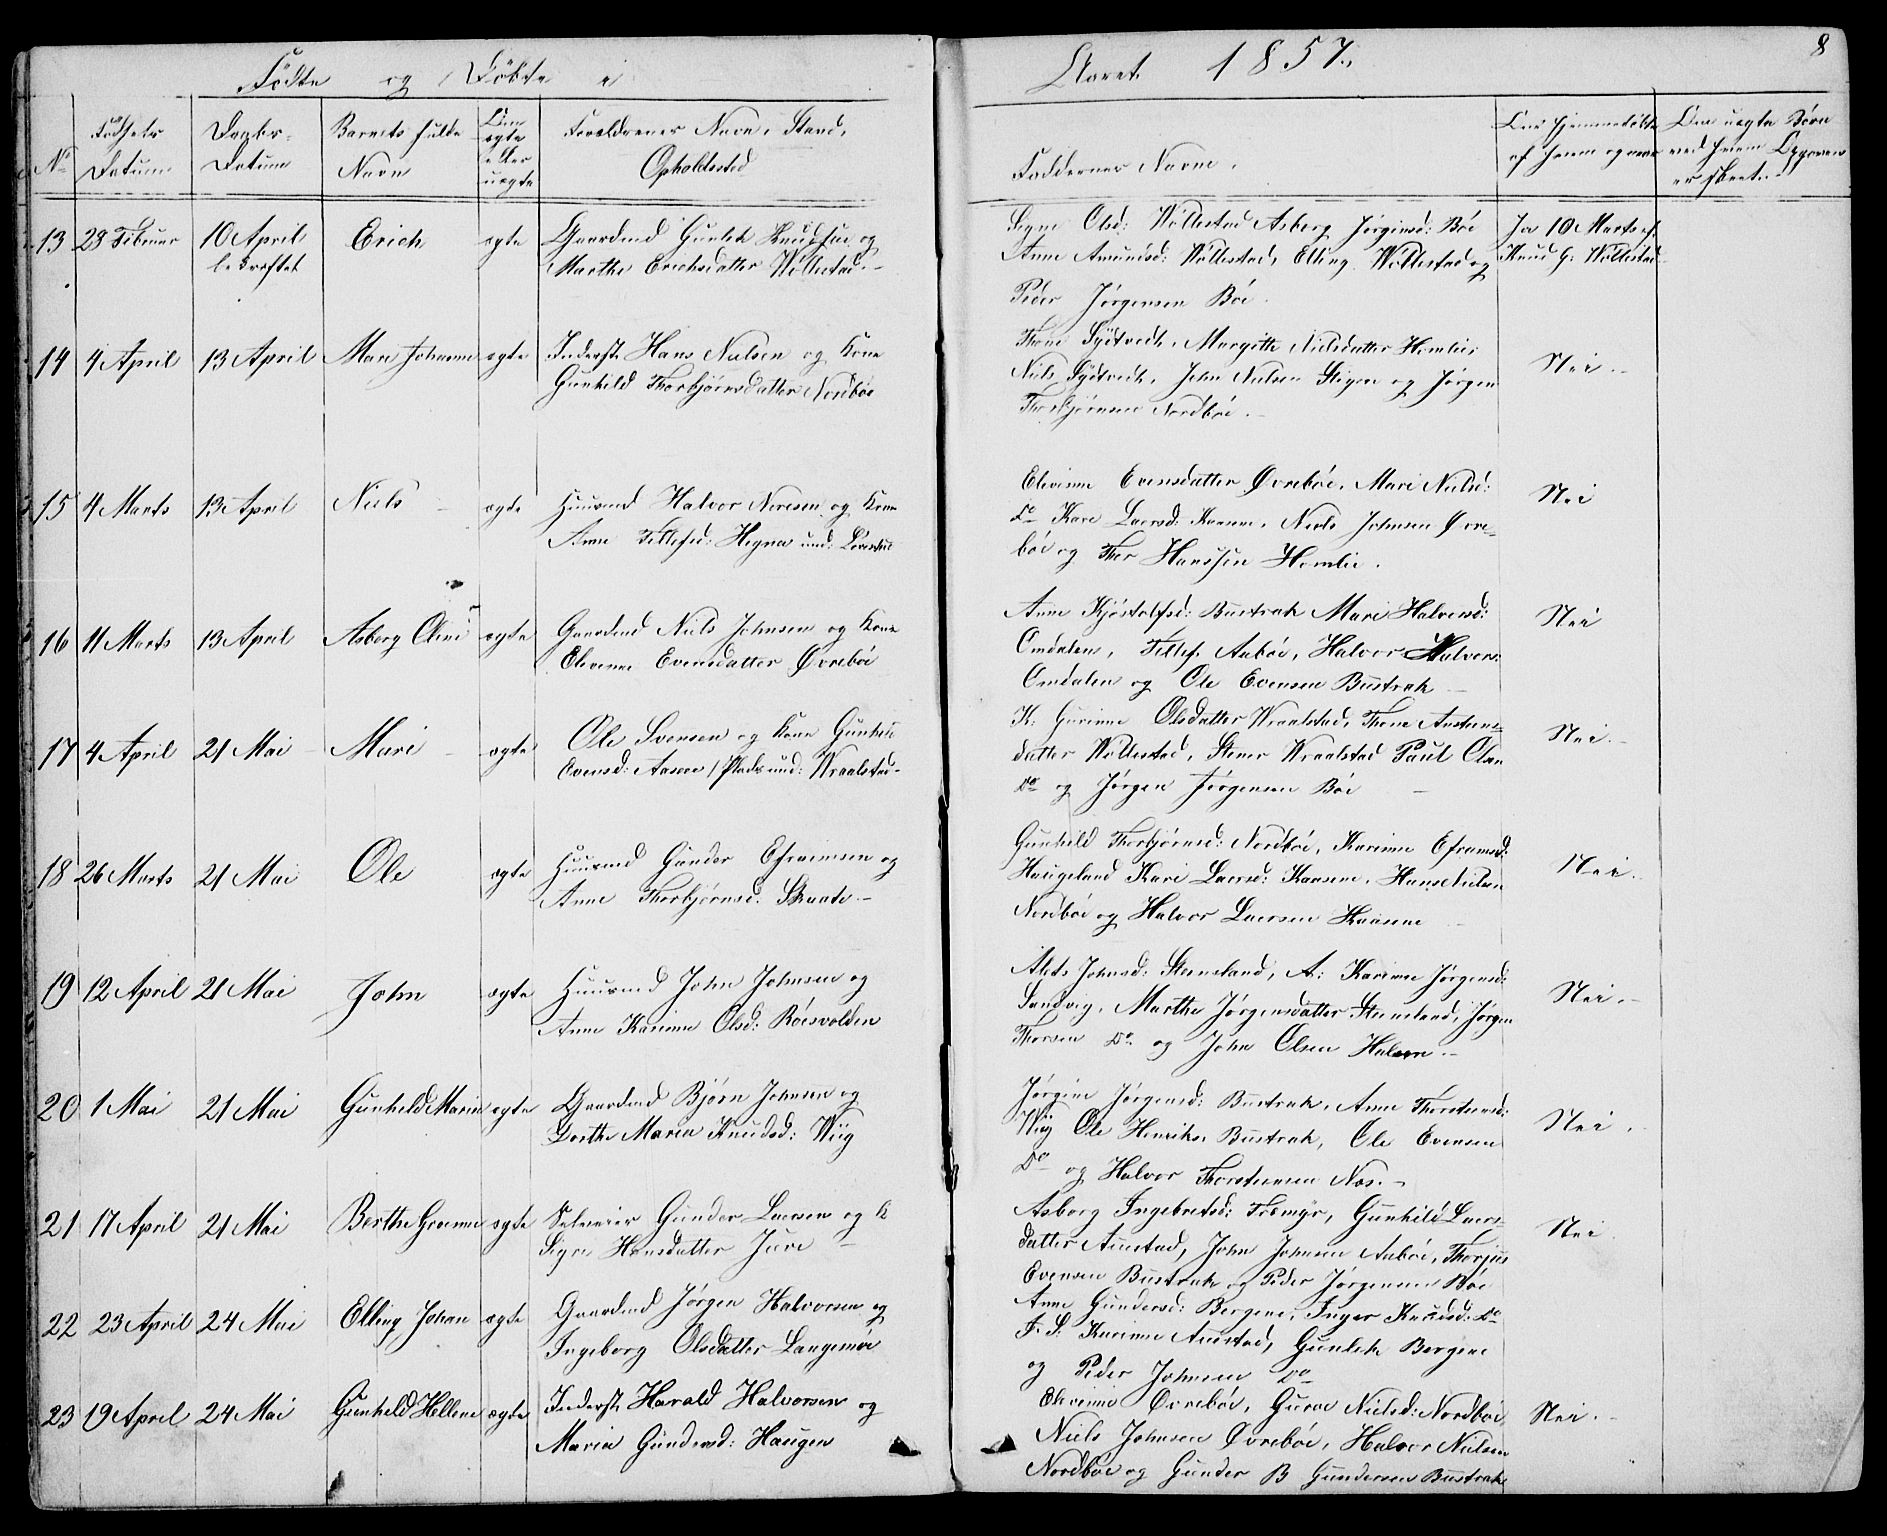 Fødte og Døbte i
Aaret 1857.
8
No
Fødsels Datum
Daabs- Datum
Barnets fulde Navn
Om ægte eller uægte
Forældrenes Navn, Stand, Opholdssted
Faddernes Navne.
Om hjemmedøbt af hvem og naar
Om uægte Børn ved hvem Opgaven er skeet.
13 28 Februar 10 April Erich ægte Gaardmd Gunlek Knudsen og
bekræftet Marthe Erichsdatter Wøllestad.-
Signe Olsd: Wøllestad Asberg Jørginsd: Bøe Ja 10 Marts af
Anne Amundsd: Wøllestad, Elling Wøllestad og Knud G: Wøllestad
Peder Jørgensen Bøe.
14 4 April 13 April Maren Johanne ægte Inderst Hans Nielsen og Kone
Gunhild Thorbjørnsdatter Nordbøe
Thone Sydtvedt, Margitte Nielsdatter Homlie, Nei.-
Niels Sydtvedt, John Nielsen Stigen og Jørgen
Thorbjørnsen Nordbøe.-
15 4 Marts 13 April Niels ægte Huusmd Halvor Neresen og Kone
Anne Tellefsd: Hegna und:
Elevine Evensdatter Øvrebøe, Mari Nielsd: Nei
Do Kari Laersd: Kaasene, Niels Johnsen Øvre-
bøe og Thor Hanssen Homlie.
16 11 Marts 13 April Asberg Oline ægte Gaardmd Niels Johnsen og Kone
Elevine Evensdatter Øvrebøe
Anne Kjøstolfsd: Bustrak Mari Halvorsd: Nei
Omdalen, Tellef Aabøe, Halvor Halvors:
Omdalen og Ole Evensen Bustrak
17 4 April 21 Mai Mari ægte Ole Svensen og Kone Gunhild
Evensd: Aasene /Plads und: Wraalstad-
K: Gurine Olsdatter Wraalstad, Thone Austens- Nei.-
datter Wøllestad, Stener Wraalstad Paul Olsen
Do og Jørgen Jørgensen Bøe
18 26 Marts 21 Mai Ole ægte Huusmd Gunder Efraimsen og
Anne Thorbjørnsd: Skaate.-
Gunhild Thorbjørnsd: Nordbøe, Karine Eframsd: Nei.
Haugeland Kari Laersd: Kaasene, Hans Nielsen
Nordbøe og Halvor Laersen Kaasene
19 12 April 21 Mai John ægte Huusmd John Johnsen og
Anne Karine Olsd: Røesvolden
Alets Johnsd: Steensland, A: Karine Jørgensd: Nei.-
Sandvig, Marthe Jørgensdatter Steensland, Jørgen
Thorsen Do og John Olsen
20 1 Mai 21 Mai Gunhild Maria ægte Gaardmd Bjørn Johnsen og
Dorthe Maria Knudsd: Wiig
Jørgine Jørgensd: Bustrak, Anne Thorstensd: Nei.
Wiig Ole Henriks: Bustrak, Ole Evensen
Do og Halvor Thorstensen Næs.-
21 17 April 21 Mai Berthe Groine ægte Selveier Gunder Laersen og K
Signe Hansdatter Juve
Asborg Ingebretsd: Tromyr, Gunhild Laers- Nei.
datter Aunstad, John Johnsen Aabøe, Thorjus
Evensen Bustrak og Peder Jørgensen Bøe
22 23 April 24 Mai Elling Johan ægte Gaardmd Jørgen Halvorsen og
Ingeborg Olsdatter Langemøe
Anne Gundersd: Bergene, Inger Knudsd: Do
I. S. Karine Aunstad, Gunlek Bergene
og Peder Johnsen Do
23 19 April 24 Mai Gunhild Hellene ægte Inderst Harald Halvorsen og
Maria Gundersd: Haugen
Elevine Øvrebøe, Guroe Nielsd: Nordbøe, Nei.-
Niels Johnsen Øvrebøe, Halvor Nielsen
Nordbøe og Gunder B Gundersen Bustrak